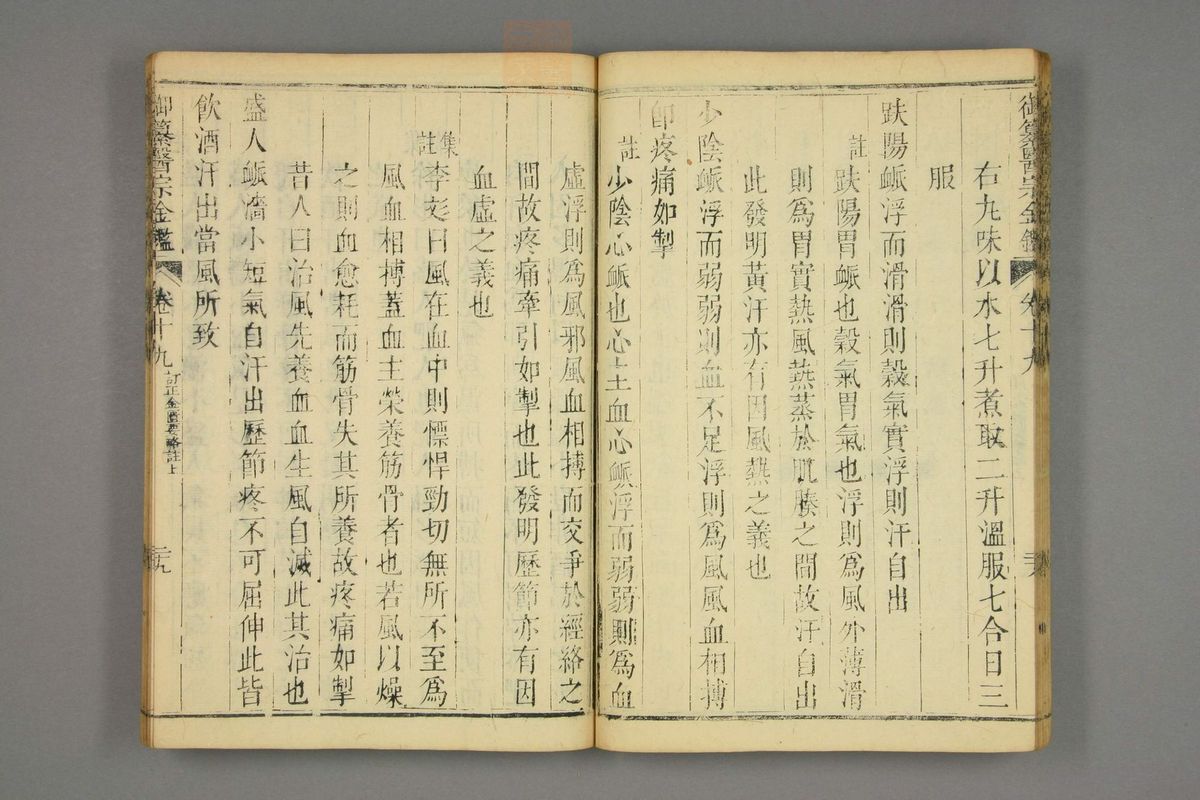 御纂醫宗金鑑 卷十九
右九味以水七升煮取二升溫服七合日三
服
趺陽脈浮而滑滑則穀氣實浮則汗自出
註
趺陽胃脈也穀氣胃氣也浮則爲風外薄滑
則爲胃實熱風熱蒸於肌腠之間故汗自出
此發明黃汗亦有因風熱之義也
少陰脈浮而弱弱則血不足浮則爲風風血相搏
即疼痛如掣
註
少陰心脈也心主血心脈浮而弱弱則爲血
虛浮則爲風邪風血相搏而交爭於經絡之
間故疼痛牽引如掣也此發明歷節亦有因
血虛之義也
集註
李彣曰風在血中則慓悍勁切無所不至爲
風血相搏蓋血主榮養筋骨者也若風以燥
之則血愈耗而筋骨失其所養故疼痛如掣
昔人曰治風先養血血生風自滅此其治也
盛人脈濇小短氣自汗出歷節疼不可屈伸此皆
飲酒汗出當風所致
御纂醫宗金鑑 卷十九 訂正金匱要略註上 二十九